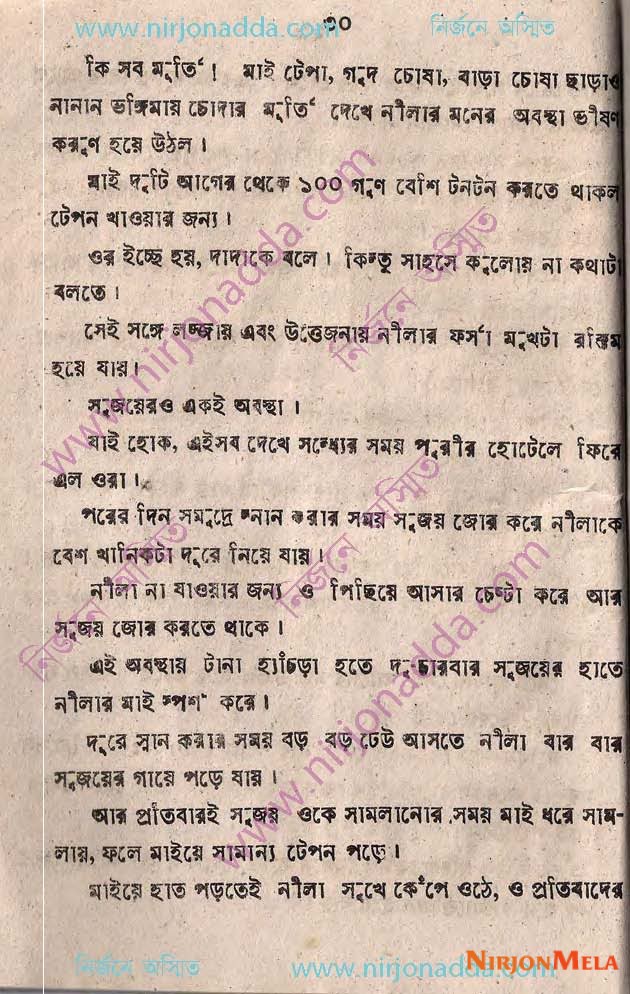 www.nirjonadda.com ৩০ নির্জনে অস্মিত
কি সব মূর্তি! মাই টেপা, গুদ চোষা, বাড়া চোষা ছাড়াও
নানান ভঙ্গিমায় চোদার মূর্তি দেখে নীলার মনের অবস্থা ভীষণ
করুণ হয়ে উঠল।
মাই দুটি আগের থেকে ১০০ গুণ বেশি টনটন করতে থাকল
টেপন খাওয়ার জন্য।
ওর ইচ্ছে হয়, দাদাকে বলে। কিন্তু সাহসে কুলোয় না কথাটা
বলতে।
সেই সঙ্গে লজ্জায় এবং উত্তেজনায় নীলার ফর্সা মুখটা রক্তিম
হয়ে যায়।
সুজয়েরও একই অবস্থা।
যাই হোক, এইসব দেখে সন্ধ্যের সময় পুরীর হোটেলে ফিরে
এল ওরা।
পরের দিন সমুদ্রে স্নান করার সময় সুজয় জোর করে নীলাকে
বেশ খানিকটা দূরে নিয়ে যায়।
নীলা না যাওয়ার জন্য ও পিছিয়ে আসার চেষ্টা করে আর
সুজয় জোর করতে থাকে।
এই অবস্থায় টানা হ্যাঁচড়া হতে দুচারবার সুজয়ের হাতে
নীলার মাই স্পর্শ করে।
দূরে স্নান করার সময় বড় বড় ঢেউ আসতে নীলা বার বার
সুজয়ের গায়ে পড়ে যায়।
আর প্রতিবারই সুজয় ওকে সামলানোর সময় মাই ধরে সাম-
লায়, ফলে মাইয়ে সামান্য টেপন পড়ে।
মাইয়ে হাত পড়তেই নীলা সুখে কেঁপে ওঠে, ও প্রতিবাদের
নির্জনে অস্মিত www.nirjonadda.com
NIRJONMELA
www.nirjonadda.com নির্জনে অস্মিত
নির্জনে অস্মিত www.nirjonadda.com
নির্জনে অস্মিত